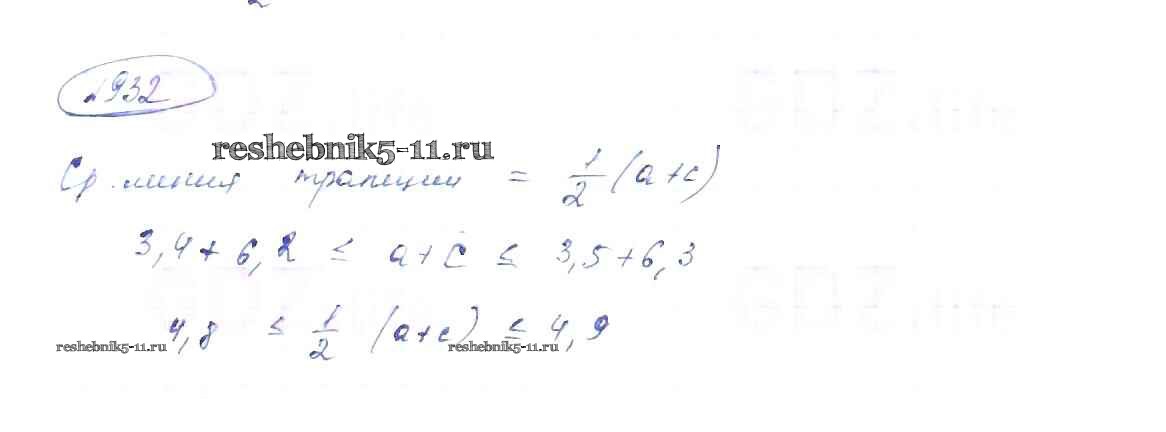 №932
reshebnik5-11.ru
Ср. линия трапеции = 1/2 (a+c)
3,4 + 6,2 ≤ a + c ≤ 3,5 + 6,3
4,8 ≤ 1/2 (a+c) ≤ 4,9
reshebnik5-11.ru reshebnik5-11.ru